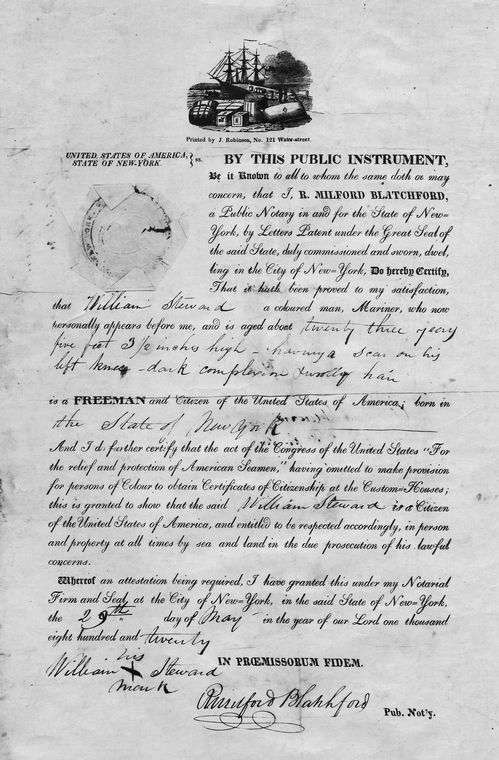 Printed by J. Robinson, No. 121 Water-street.
UNITED STATES OF AMERICA, } ss.
STATE OF NEW-YORK.
BY THIS PUBLIC INSTRUMENT,
Be it Known to all to whom the same doth or may
concern, that I, R. MILFORD BLATCHFORD,
a Public Notary in and for the State of New=
York, by Letters Patent under the Great Seal of
the said State, duly commissioned and sworn, dwel,
ling in the City of New=York, Do hereby Certify,
That it hath been proved to my satisfaction,
that William Steward a coloured man, Mariner, who now
personally appears before me, and is aged about twenty three years
five feet 3 1/2 inches high - having a scar on his
left knee - dark complexion & wolly hair
is a FREEMAN and Citizen of the United States of America; born in
the State of New York
And I do further certify that the act of the Congress of the United States "For
the relief and protection of American Seamen," having omitted to make provision
for persons of Colour to obtain Certificates of Citizenship at the Custom=Houses;
this is granted to show that the said William Steward is a Citizen
of the United States of America, and entitled to be respected accordingly, in person
and property at all times by sea and land in the due prosecution of his lawful
concerns.
Whereof an attestation being required, I have granted this under my Notarial
Firm and Seal, at the City of New=York, in the said State of New=York,
the 29th day of May in the year of our Lord one thousand
eight hundred and twenty
his
William X Steward
mark
IN PRŒMISSORUM FIDEM.
RMilford Blatchford
Pub. Not'y.